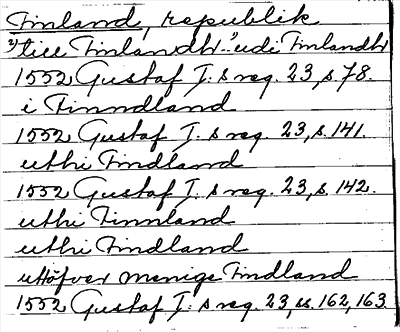 Finland, republik
till Finlandh. udi Finlandh
1552 Gustaf I:s reg. 23, s. 78.
i Finndland
1552 Gustaf I:s reg. 23, s. 141.
uthi Findland
1552 Gustaf I:s reg. 23, s. 142.
uthi Finnland
uthi Findland
uttöfver menige Findland
1552 Gustaf I:s reg. 23, ss. 162, 163.